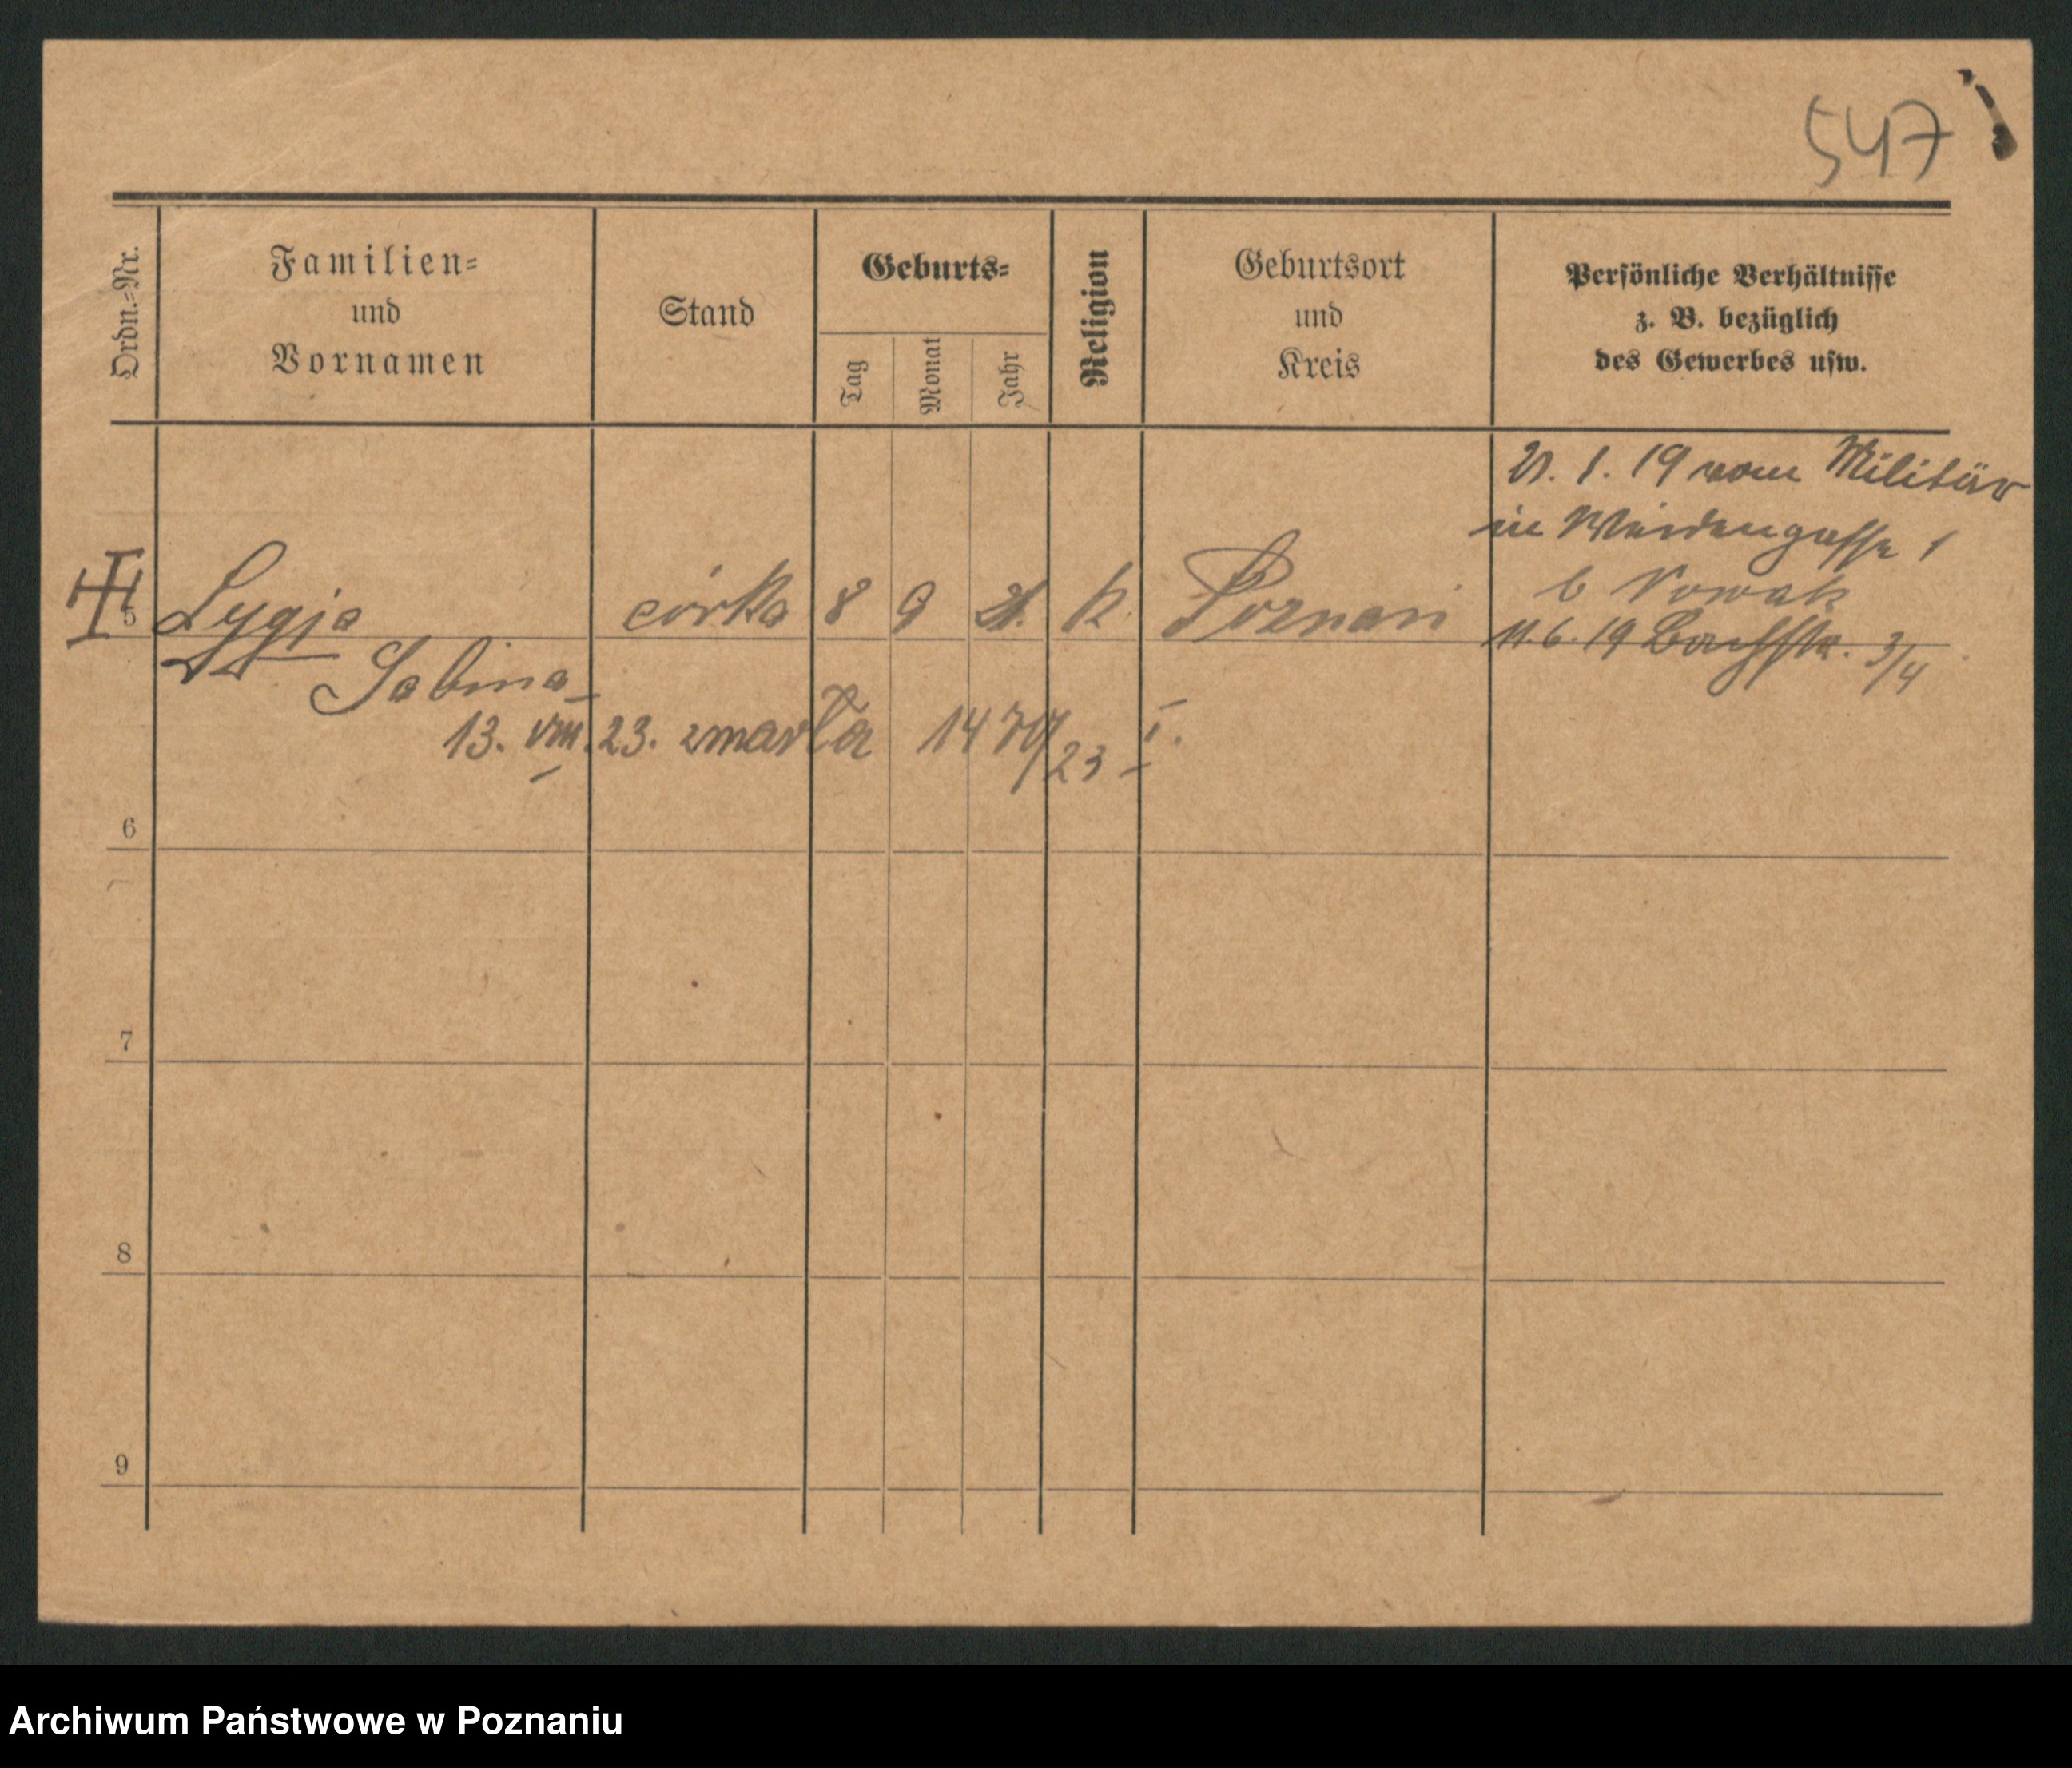 547
Ordn.-Nr.
Familien-
und
Vornamen
Stand
Geburts-
Tag
Monat
Jahr
Religion
Geburtsort
und
Kreis
Persönliche Verhältnisse
z. B. bezüglich
des Gewerbes usw.
21. 1. 19 vom Militär
in Weidengasse 1
b Nowak
5 Lygja córka 8 9 21. k. Poznań 11.6.19 Bachstr. 3/4
Sabina
13. VIII. 23. zmarła 1470/23 I.
6
7
8
9
Archiwum Państwowe w Poznaniu